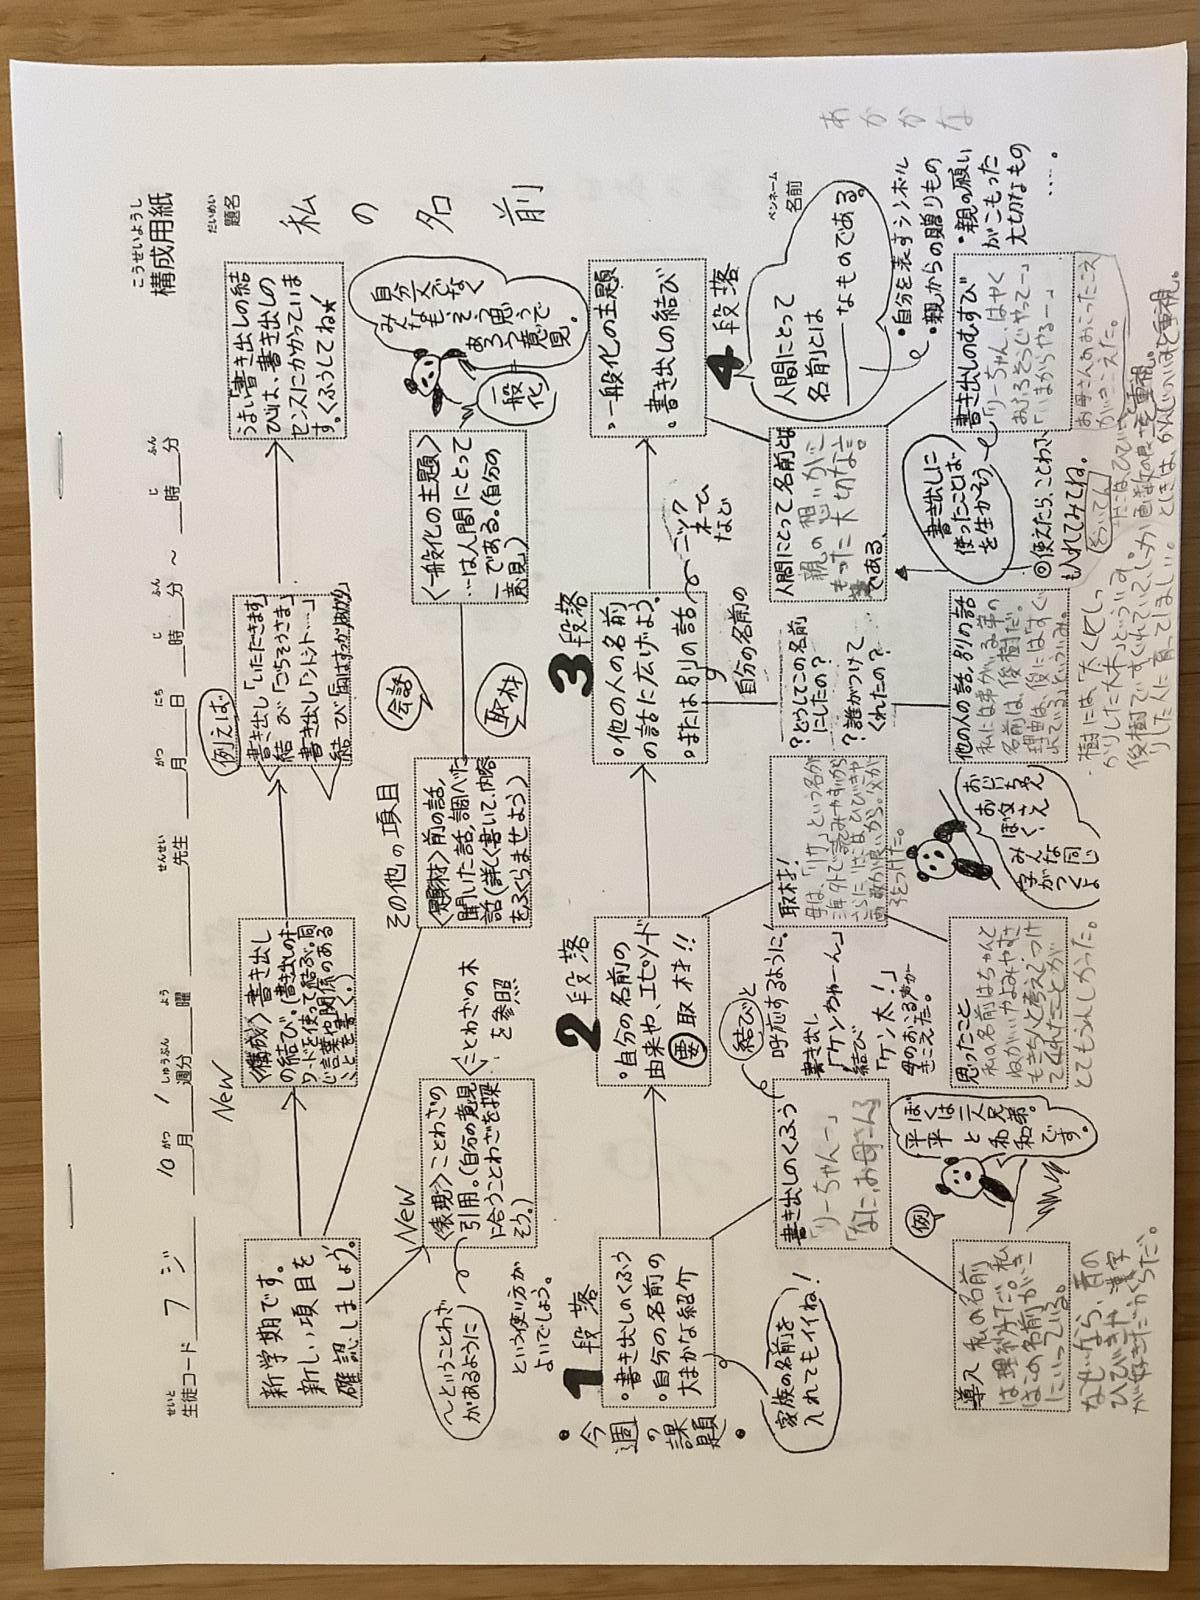 構成用紙
こうせいようし
生徒コード フジ 10月1週分 曜 先生 月 日 時 分 ～ 時 分
せいと がつ しゅうぶん よう せんせい がつ にち じ ふん じ ふん
題名
だいめい
私の名前
新学期です。
新しい項目を
確認しましょう。
New
〈構成〉書き出し
の結び。(書き出しのキー
ワードを使って結ぶ。同
じ言葉や関係のある
ことを書く。)
例えば
書き出し「いただきます」
結び「ごちそうさま」
書き出し「トントントン…」
うまい書き出しの結
びは、書き出しの
センスにかかっていま
す。くふうしてね★
New
〈表現〉ことわざの
引用。(自分の意見
に合うことわざを探
そう。)
〜ということわざ
があるように
という使い方が
よいでしょう。
〈ことわざの木〉
を参照
その他の項目
〈題材〉前の話、
聞いた話、調べた
話(詳しく書いて、内容
をふくらませよう)
会話
取材
〈一般化の主題〉
…は人間にとって
―である。(自分の
意見)
一般化
自分文でなく
みんなもそう思う
あろう意見で
・今週の課題・
1段落
・書き出しのくふう
・自分の名前の
大まかな紹介
家族の名前を
入れてもイイね!
2段落
・自分の名前の
由来や、エピソード
要取材!!
3段落
・他の人の名前
の話に広げよう。
・または別の話
ニック
ネーム
など
自分の名前の
4段落
・一般化の主題
・書き出しの結び
ペンネーム
名前
あかかな
人間にとって
名前とは
―――なものである。
・自分を表すシンボル
・親からの贈りもの
・親の願い
がこもった
大切なもの
……。
書き出しのくふう
「りーちゃんー」
「なに、お母さん」
結びと
呼応するように。
書き出し
「ケンちゃーん」
結び
「ケン太!」
母のおこる声が
きこえた。
取材!
母は、「リカ」という名が
海外で読みやすいから
さらに、りさこは、ひびきや
画数が良いから。父が
をつけた。
?どうしてこの名前
にしたの?
?誰がつけて
くれたの?
人間にとって名前とは
親の想いがこ
もった大切な
である、
書き出しのむすび
「りーちゃん、はやく
おふろそうじやってー」
「いまからやるー」
お母さんのおこったこえ
がきこえた。
書き出しに
使ったことば
を生かそう
◎使えたら、ことわざ
も入れてみてね。
導入 私の名前
は理紗子だ。私
はこの名前がき
にいっている。
なぜなら、音の
ひびきや、漢字
が好きだからだ。
例
ぼくは
平二と
平和
三人兄弟。
です。
思ったこと
私の名前はちゃんと
ねがいがよみやすさ
もきちんと考えてつけ
てくれたことが
とてもうれしかった。
おじいちゃん
お父さん
ぼく、
みんな同じ
字がつくよ
他の人の話、別の話
私には弟がいる弟の
名前は、俊樹だ。
理由は、俊には「すぐ
れている」といういみ。
・樹には、「大きくしっ
かりした大木」といういみ。
俊樹ですぐれていてしっか
りした人に育ってほしい。
画数の良さを重視。
ときは、かんじのいみを重視。